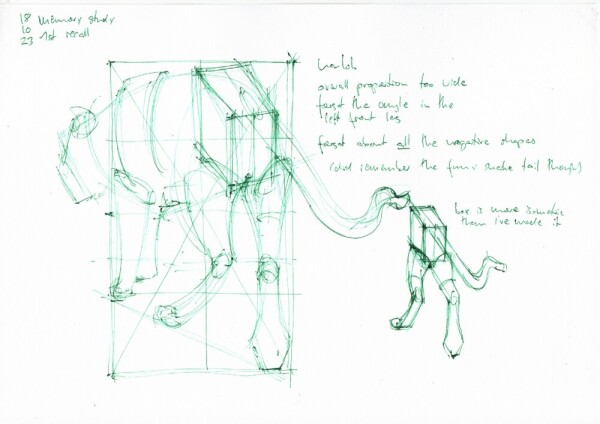 18 memory study
10
23 1st recall
overall proportion too wide
forgot the angle in the
left front leg
forgot about all the negative shapes
(did remember the funny snake tail though)
box is more isometric
than I've made it